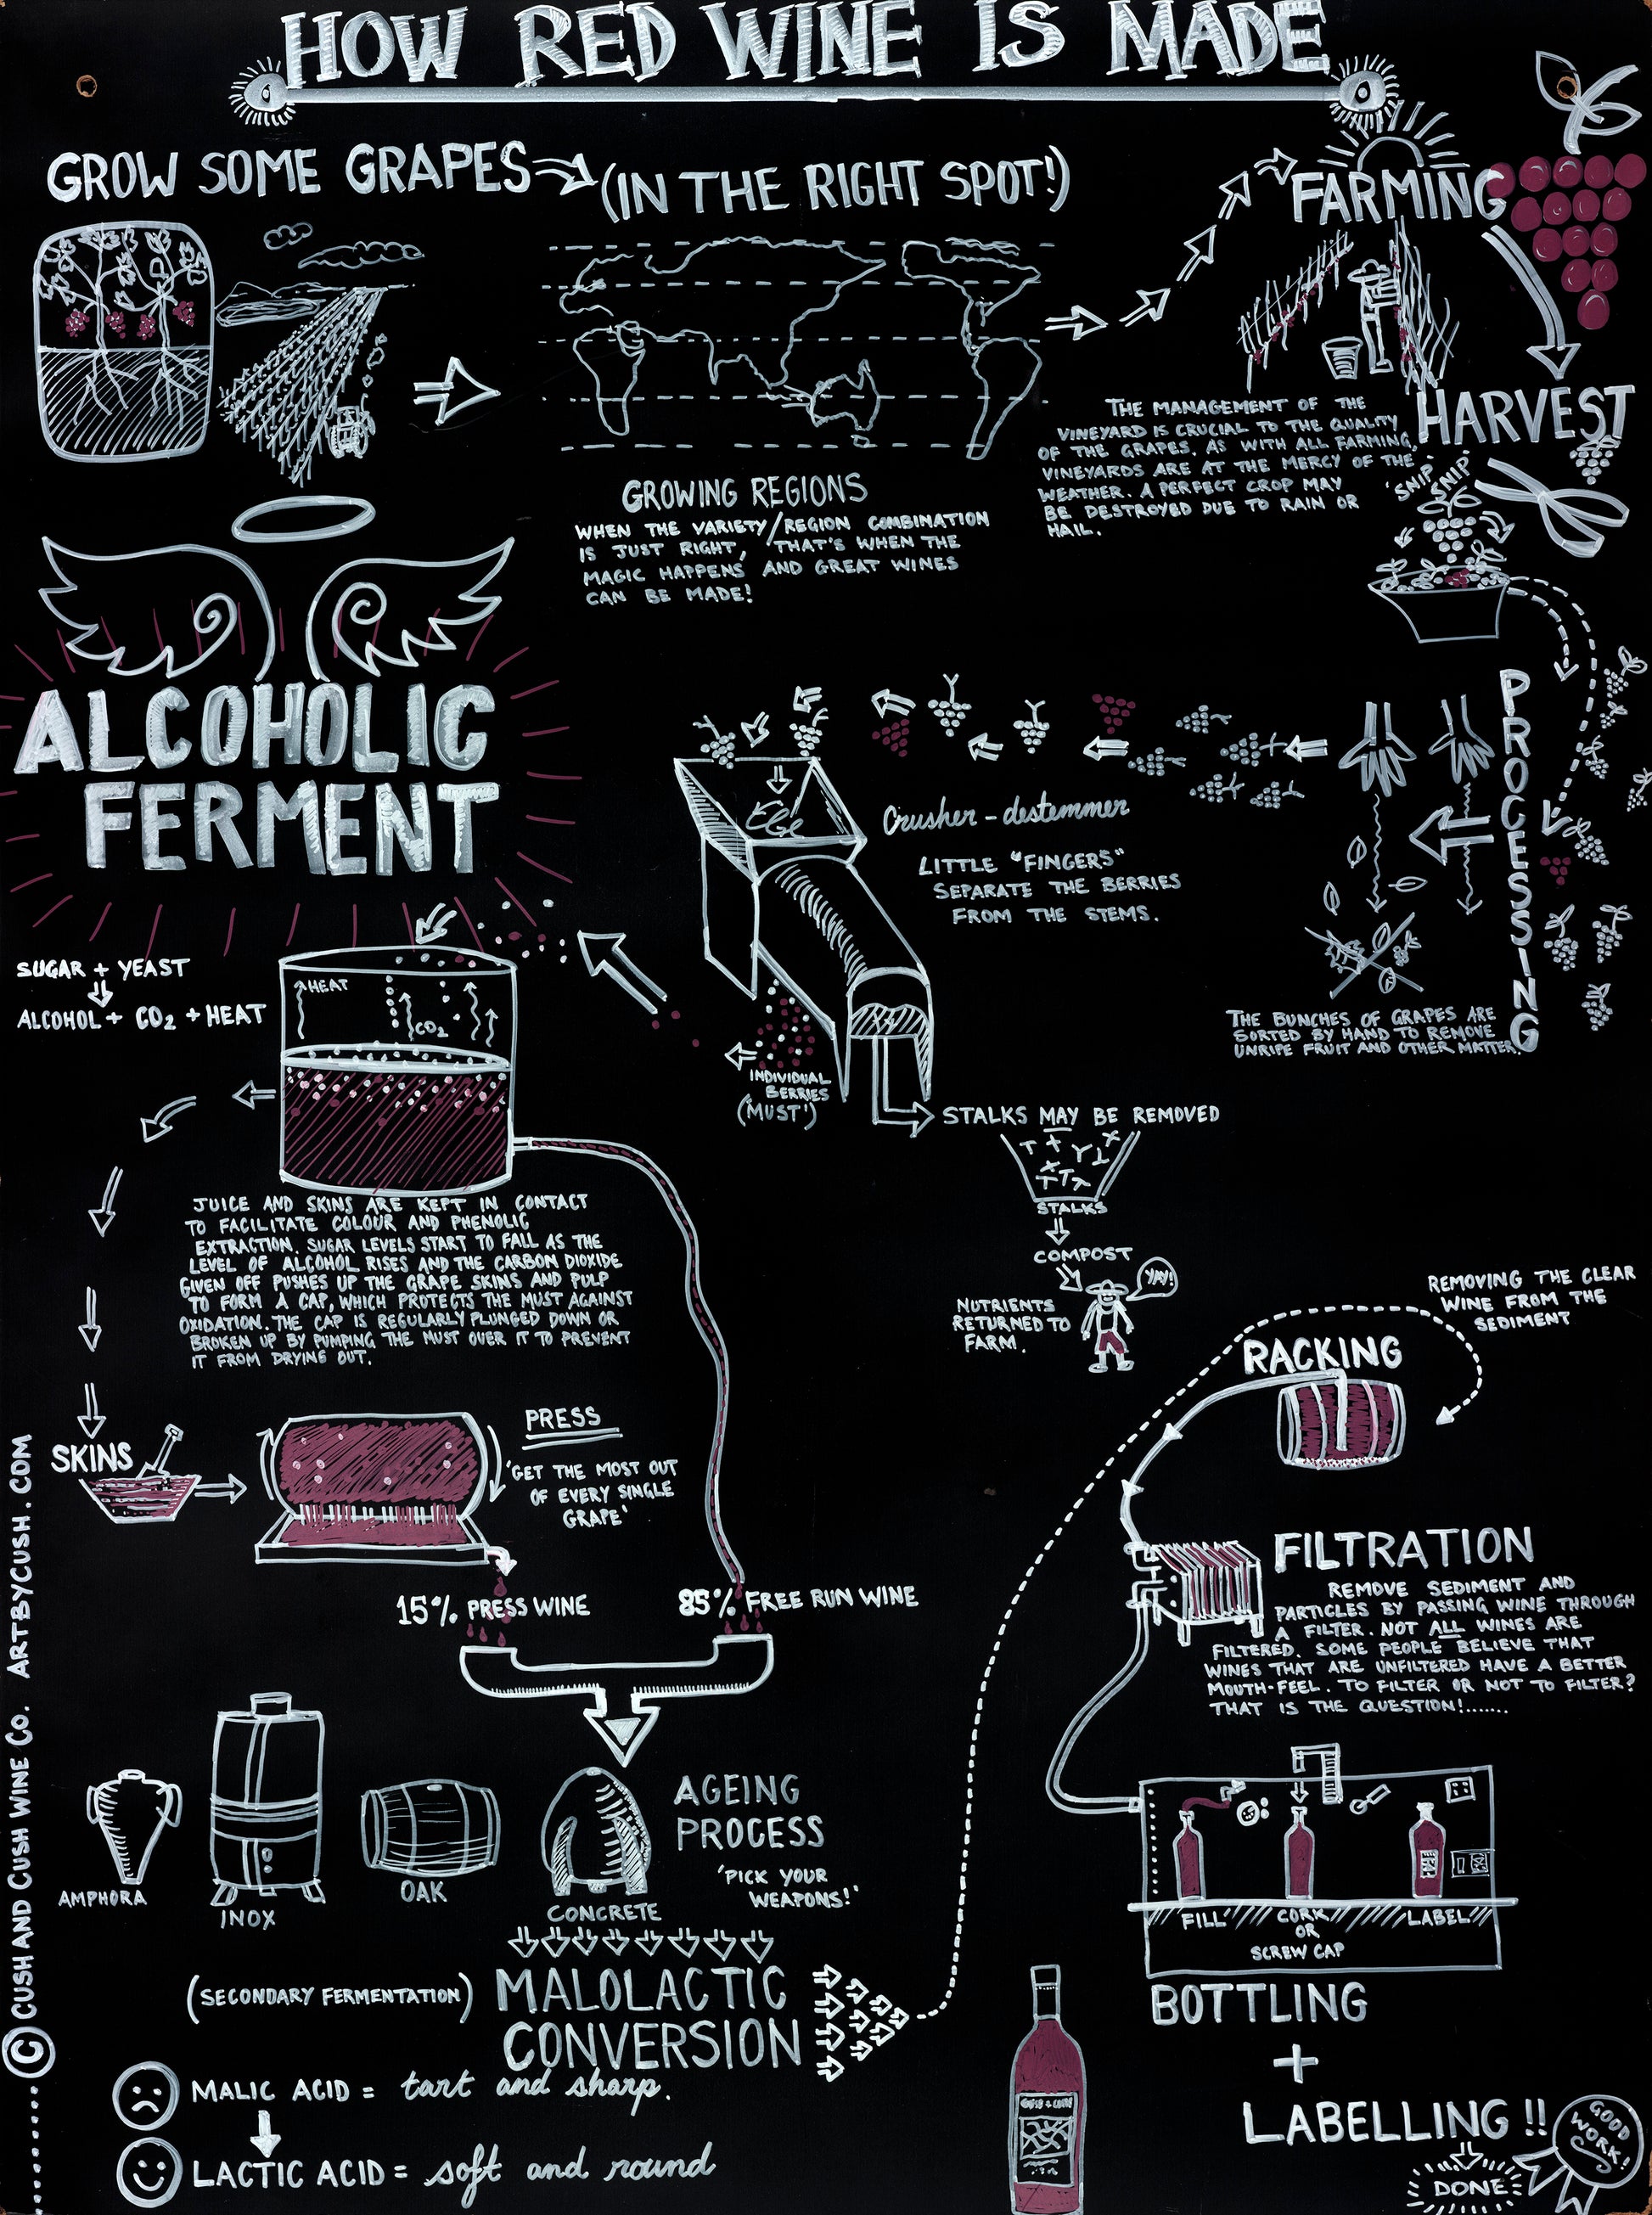 HOW RED WINE IS MADE
GROW SOME GRAPES
(IN THE RIGHT SPOT!)
GROWING REGIONS
WHEN THE VARIETY/REGION COMBINATION
IS JUST RIGHT, THAT'S WHEN THE
MAGIC HAPPENS AND GREAT WINES
CAN BE MADE!
FARMING
THE MANAGEMENT OF THE
VINEYARD IS CRUCIAL TO THE QUALITY
OF THE GRAPES. AS WITH ALL FARMING,
VINEYARDS ARE AT THE MERCY OF THE
WEATHER. A PERFECT CROP MAY
BE DESTROYED DUE TO RAIN OR
HAIL.
HARVEST
'SNIP SNIP'
PROCESSING
THE BUNCHES OF GRAPES ARE
SORTED BY HAND TO REMOVE
UNRIPE FRUIT AND OTHER MATTER.
Crusher-destemmer
LITTLE "FINGERS"
SEPARATE THE BERRIES
FROM THE STEMS.
INDIVIDUAL
BERRIES
(MUST')
STALKS MAY BE REMOVED
STALKS
COMPOST
YAY!
NUTRIENTS
RETURNED TO
FARM.
ALCOHOLIC
FERMENT
SUGAR + YEAST
ALCOHOL + CO2 + HEAT
HEAT
CO2
JUICE AND SKINS ARE KEPT IN CONTACT
TO FACILITATE COLOUR AND PHENOLIC
EXTRACTION. SUGAR LEVELS START TO FALL AS THE
LEVEL OF ALCOHOL RISES AND THE CARBON DIOXIDE
GIVEN OFF PUSHES UP THE GRAPE SKINS AND PULP
TO FORM A CAP, WHICH PROTECTS THE MUST AGAINST
OXIDATION. THE CAP IS REGULARLY PLUNGED DOWN OR
BROKEN UP BY PUMPING THE MUST OVER IT TO PREVENT
IT FROM DRYING OUT.
SKINS
PRESS
'GET THE MOST OUT
OF EVERY SINGLE
GRAPE'
15% PRESS WINE
85% FREE RUN WINE
AMPHORA
INOX
OAK
CONCRETE
AGEING
PROCESS
'PICK YOUR
WEAPONS!'
(SECONDARY FERMENTATION)
MALOLACTIC
CONVERSION
MALIC ACID = tart and sharp.
LACTIC ACID = soft and round
REMOVING THE CLEAR
WINE FROM THE
SEDIMENT
RACKING
FILTRATION
REMOVE SEDIMENT AND
PARTICLES BY PASSING WINE THROUGH
A FILTER. NOT ALL WINES ARE
FILTERED. SOME PEOPLE BELIEVE THAT
WINES THAT ARE UNFILTERED HAVE A BETTER
MOUTH-FEEL. TO FILTER OR NOT TO FILTER?
THAT IS THE QUESTION!.......
FILL
CORK
OR
SCREW CAP
LABEL
BOTTLING
+
LABELLING!!
DONE
GOOD
WORK!
© CUSH AND CUSH WINE CO. ARTBYCUSH.COM